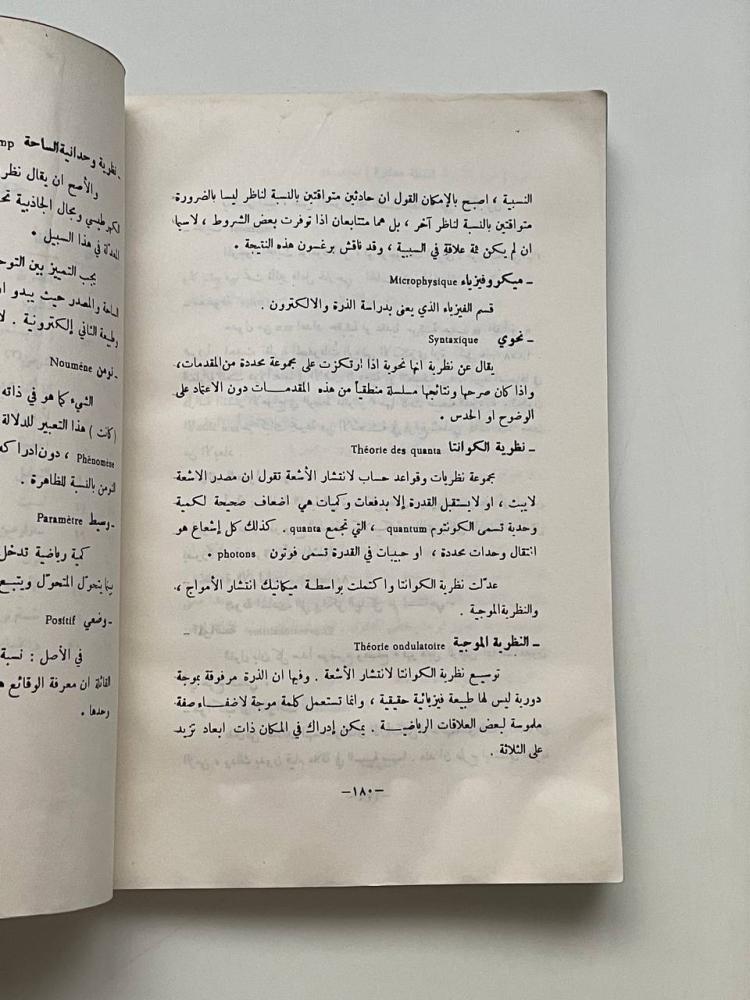 النسبية ، اصبح بالإمكان القول ان حادثين متواقتين بالنسبة لناظر ليسا بالضرورة
متواقتين بالنسبة لناظر آخر ، بل هما متتابعان اذا توفرت بعض الشروط ، لاسيما
ان لم يكن ثمة علاقة في السببية ، وقد ناقش برغسون هذه النتيجة .
ـ ميكروفيزياء Microphysique
قسم الفيزياء الذي يعنى بدراسة الذرة والالكترون .
ـ نحوي Syntaxique
يقال عن نظرية انها نحوية اذا ارتكزت على مجموعة محددة من المقدمات،
واذا كان صرحها ونتائجها مسلسلة منطقياً من هذه المقدمات دون الاعتماد على
الوضوح او الحدس .
ـ نظرية الكوانتا Théorie des quanta
مجموعة نظريات وقواعد حساب لانتشار الأشعة تقول ان مصدر الاشعة
لايبث ، او لايستقبل القدرة إلا بدفعات وكميات هي اضعاف صحيحة لكمية
وحدية تسمى الكونتوم quantum ، التي تجمع quanta . كذلك كل إشعاع هو
انتقال وحدات محددة ، او حبيبات في القدرة تسمى فوتون photons .
عدّلت نظرية الكوانتا واكتملت بواسطة ميكانيك انتشار الأمواج ،
والنظرية الموجية .
ـ النظرية الموجية Théorie ondulatoire
توسيع نظرية الكوانتا لانتشار الأشعة . وفيها ان الذرة مرفوقة بموجة
دورية ليس لها طبيعة فيزيائية حقيقية ، وانما تستعمل كلمة موجة لاضفاء صفة
ملموسة لبعض العلاقات الرياضية . يمكن إدراك في المكان ذات ابعاد تزيد
على الثلاثة .
ـ ١٨٠ ـ
ـ نظرية وحدانية الساحة
والأصح ان يقال
الكهرطيسي ومجال الجاذبية
المعدلة في هذا السبيل .
يجب التمييز بين
الساحة والمصدر حيث يبدو
وطبيعة الثاني إلكترونية .
ـ نومن Noumène
الشيء كما هو في ذاته
(كانت) هذا التعبير للدلالة
Phénomène ، دون ادراكه
النومن بالنسبة للظاهرة .
ـ وسيط Paramètre
كمية رياضية تدخل
بينما يتحوّل المتحوّل ويتبع
ـ وضعي Positif
في الأصل : نسبة
القائلة ان معرفة الوقائع
وحدها .